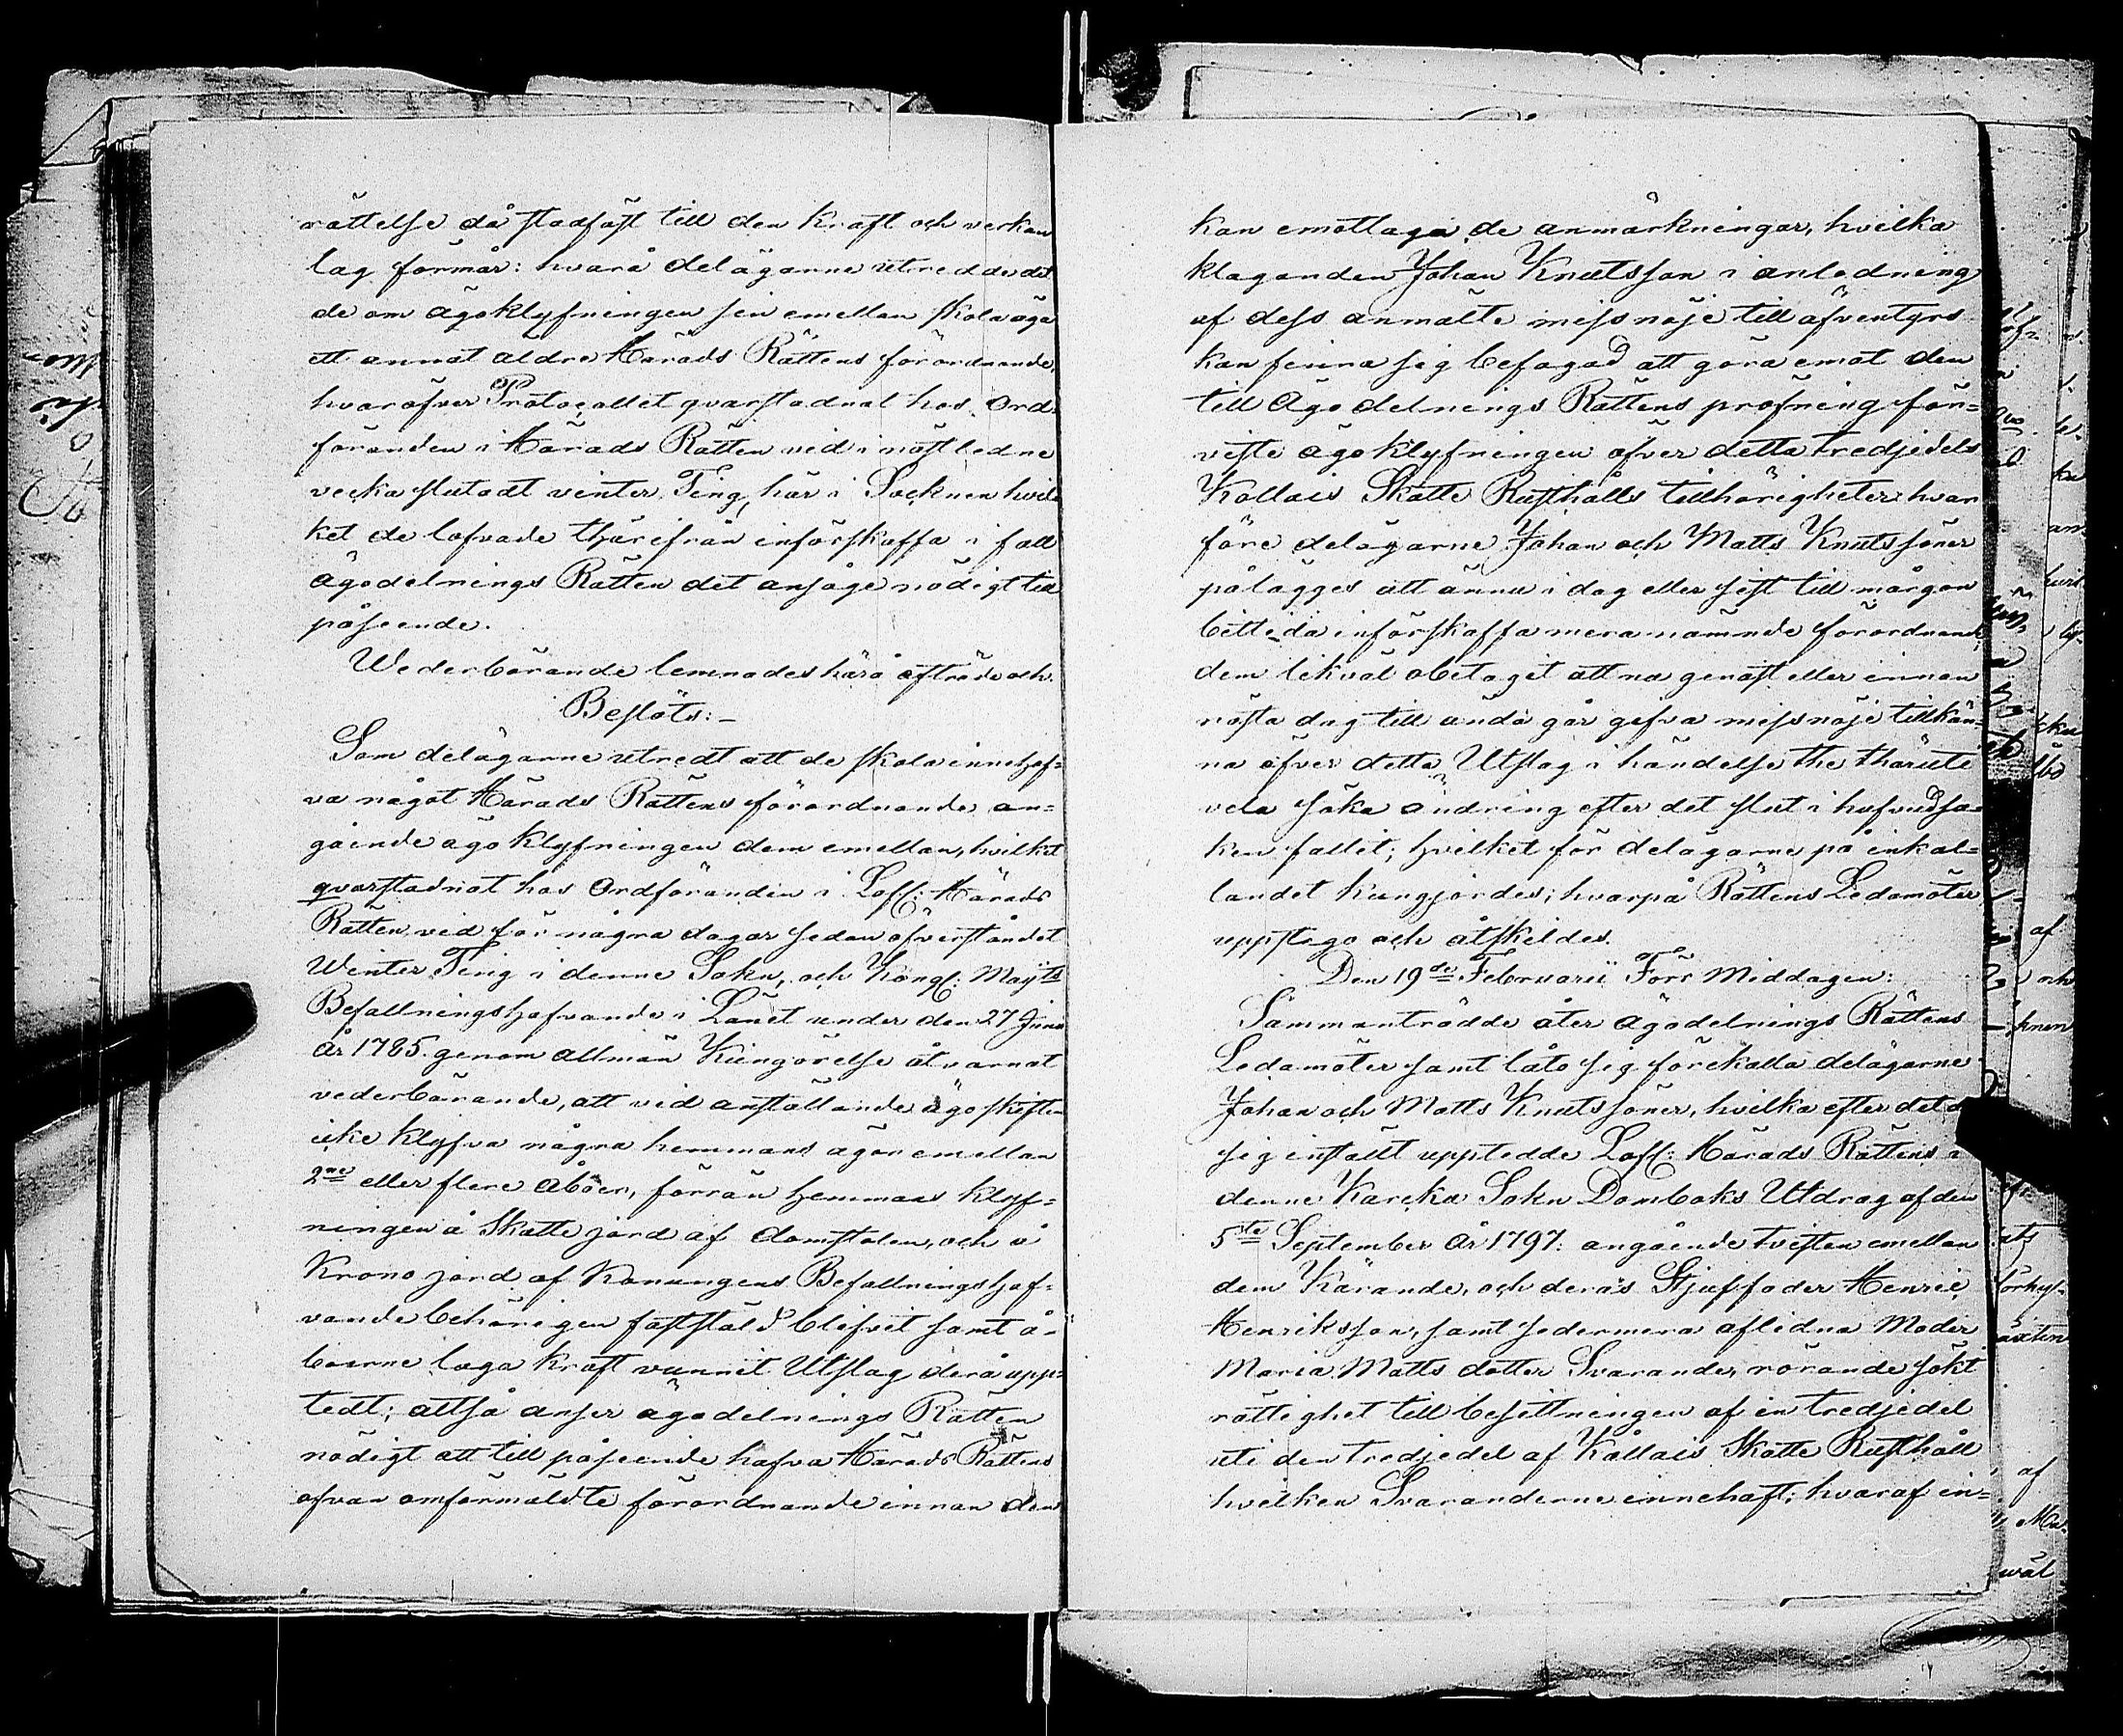 rättelse då stadfäst till den kraft och verkan
lag förmår: hvarå delägarne utredde det
de om ägoklyfningen sin emellan skola äga
ett annat äldre Härads Rättens förordnande,
hvaröfver Protocollet qvarstadnat hos Ord-
föranden i Härads Rätten vid i nästledne
vecka slutadt vinter Ting, här i Socknen hvil-
ket de lofvade thärifrån införskaffa i fall
ägodelnings Rätten det ansåge nödigt till
påseende.
Wederbörande lemnades härå afträde och
Beslöts:-
Som delägarne utredt att de skola innehaf=
va något Härads Rättens förordnande an=
gående ägo klyfningen dem emellan, hvilket
qvarstadnat hos Ordföranden i Lofl: Härads
Rätten vid för några dagar sedan öfverståndet
Winter Ting i denne Sokn, och Kongl: Maij:ts
Befallningshafvande i Länet under den 27 Junii
år 1785. genom allmän Kungörelse åtvarnat
vederbörande, att vid anställande ägoskiften
icke klyfva några hemmans ägor emellan
2ne eller flere åboer, förrän hemmans klyf=
ningen å Skatte jord af domstolen, och å
Krono jord af Konungens Befallningshaf=
vande behörigen fastställd blifvit samt å-
boerne laga kraft vunnit Utslag derå upp-
tedt; alltså anser ägodelnings Rätten
nödigt att till påseende hafva Härads Rättens
ofvan omförmäldte förordnande innan den
kan emottaga de anmärkningar, hvilka
klaganden Johan Knutsson i anledning
af dess anmälte missnöje till äfventyrs
kan finna sig befogad att göra emot den
till Ägodelnings Rättens pröfning för=
viste ägoklyfningen öfver detta tredjedels
Kållais Skatte Rusthålls tillhörigheter: hvar
före delägarne Johan och Matts Knutssöner
pålägges att ännu i dag eller sist till morgon
bittida införskaffa mera nämnde förordnande;
dem likväl obetagit att nu genast eller innan
nästa dag till ända går gifva missnöje tillkän-
na öfver detta Utslag i händelse the thäruti
vela söka ändring efter det slut i hufvudsa=
ken fallit; hvilket för delägarne på inkal=
landet kungjordes; hvarpå Rättens Ledamöter
uppstego och åtskildes.
Den 19de Februarii Förr Middagen:
Sammanträdde åter ägodelnings Rättens
Ledamöter samt läto sig förekalla delägarne
Johan och Matts Knutssöner, hvilka efter det de
sig inställt upptedde Lofl: Härads Rättens i
denne Karcku Sokn Domboks Utdrag af den
5te September år 1797: angående tvisten emellan
dem Kärande, och deras Stjuffader Henric
Henriksson, samt sedermera aflidna Moder
Maria Matts dotter Svarande, rörande sökt
rättighet till besittningen af en tredjedel
uti den tredjedel af Kållais Skatte Rusthåll
hvilken Svaranderne innehaft; hvaraf in=